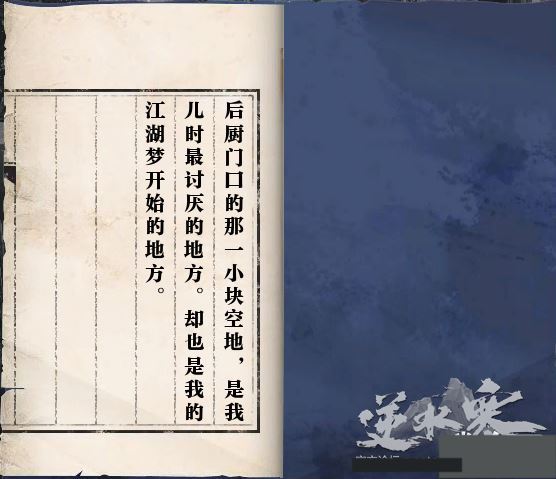 后厨门口的那一小块空地，是我
儿时最讨厌的地方。却也是我的
江湖梦开始的地方。
逆水寒